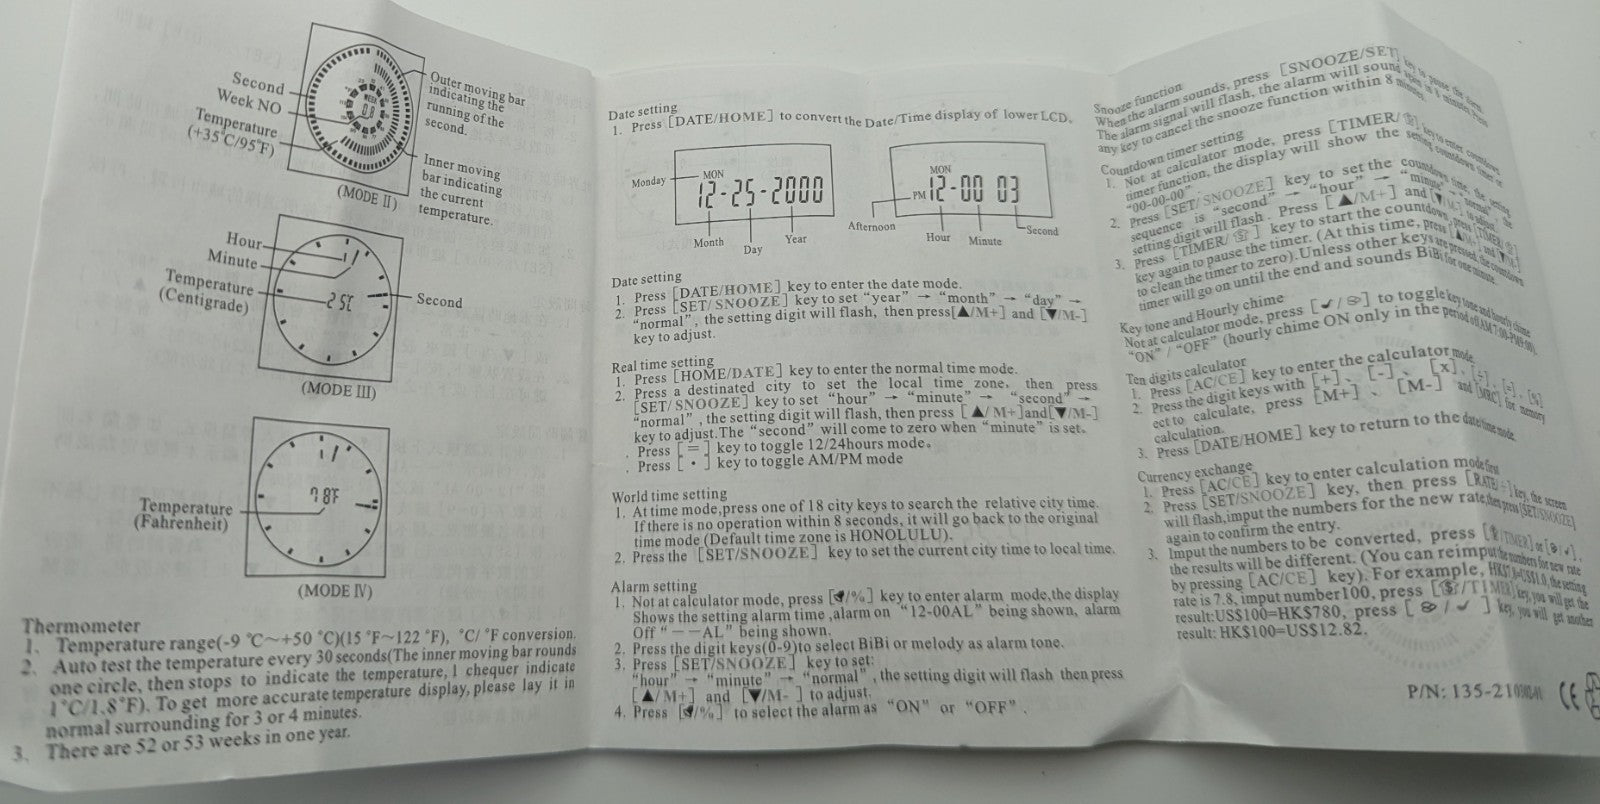 Second
Week NO
Temperature
(+35℃/95℉)
Outer moving bar
indicating the
running of the
second.
Inner moving
bar indicating
the current
temperature.
WEEK
08
(MODE II)
Hour
Minute
Temperature
(Centigrade)
25℃
Second
(MODE III)
Temperature
(Fahrenheit)
78℉
(MODE IV)
Thermometer
1. Temperature range(-9 ℃~+50 ℃)(15 ℉~122 ℉), ℃/ ℉ conversion.
2. Auto test the temperature every 30 seconds(The inner moving bar rounds
one circle, then stops to indicate the temperature, 1 chequer indicate
1℃/1.8℉). To get more accurate temperature display, please lay it in
normal surrounding for 3 or 4 minutes.
3. There are 52 or 53 weeks in one year.
Date setting
1. Press [DATE/HOME] to convert the Date/Time display of lower LCD.
Monday
MON
12-25-2000
Month
Day
Year
MON
PM 12-00 03
Afternoon
Hour
Minute
Second
Date setting
1. Press [DATE/HOME] key to enter the date mode.
2. Press [SET/ SNOOZE] key to set “year” → “month” → “day” →
“normal”, the setting digit will flash, then press[▲/M+] and [▼/M-]
key to adjust.
Real time setting
1. Press [HOME/DATE] key to enter the normal time mode.
2. Press a destinated city to set the local time zone, then press
[SET/ SNOOZE] key to set “hour” → “minute” → “second” →
“normal”, the setting digit will flash, then press [ ▲/ M+]and[▼/M-]
key to adjust.The “second” will come to zero when “minute” is set.
. Press [ = ] key to toggle 12/24hours mode。
. Press [ • ] key to toggle AM/PM mode
World time setting
1. At time mode,press one of 18 city keys to search the relative city time.
If there is no operation within 8 seconds, it will go back to the original
time mode (Default time zone is HONOLULU).
2. Press the [SET/SNOOZE] key to set the current city time to local time.
Alarm setting
1. Not at calculator mode, press [/%] key to enter alarm mode,the display
Shows the setting alarm time ,alarm on “12-00AL” being shown, alarm
Off “－－AL” being shown.
2. Press the digit keys(0-9)to select BiBi or melody as alarm tone.
3. Press [SET/SNOOZE] key to set:
“hour” → “minute” → “normal” , the setting digit will flash then press
[▲/ M+] and [▼/M- ] to adjust.
4. Press [/%] to select the alarm as “ON” or “OFF” .
Snooze function
When the alarm sounds, press [SNOOZE/SET] key to pause the alarm.
The alarm signal will flash, the alarm will sound
any key to cancel the snooze function within 8 minutes.
Countdown timer setting
1. Not at calculator mode, press [TIMER/] key to enter countdown
timer function, the display will show the setting countdown timer or
“00-00-00”.
2. Press [SET/ SNOOZE] key to set the countdown time, the setting
sequence is “second” → “hour” → “minute” → “normal”
setting digit will flash . Press [▲/M+] and [▼/M-] to adjust.
3. Press [TIMER/ ] key to start the countdown, press [TIMER/]
key again to pause the timer. (At this time, press [▲/M+] and [▼/M-]
to clean the timer to zero).Unless other keys are pressed, the countdown
timer will go on until the end and sounds BiBi for one minute.
Key tone and Hourly chime
Not at calculator mode, press [✓/] to toggle key tone and hourly chime
“ON” / “OFF” (hourly chime ON only in the period of(AM 7:00-PM9:00).
Ten digits calculator
1. Press [AC/CE] key to enter the calculator mode.
2. Press the digit keys with [+]、 [-]、 [x]、[÷]、[=]、[%]
ect to calculate, press [M+] 、 [M-] and [MRC] for memory
calculation.
3. Press [DATE/HOME] key to return to the date/time mode.
Currency exchange
1. Press [AC/CE] key to enter calculation mode first
2. Press [SET/SNOOZE] key, then press [RATE/÷] key, the screen
will flash,imput the numbers for the new rate,then press [SET/SNOOZE]
again to confirm the entry.
3. Imput the numbers to be converted, press [/TIMER] or [/✓],
the results will be different. (You can reimput the numbers for new rate
by pressing [AC/CE] key). For example, HK$7.8=US$1.0, the setting
rate is 7.8, imput number100, press [/TIMER] key, you will get the
result:US$100=HK$780, press [ / ✓ ] key, you will get another
result: HK$100=US$12.82.
P/N: 135-21
CE